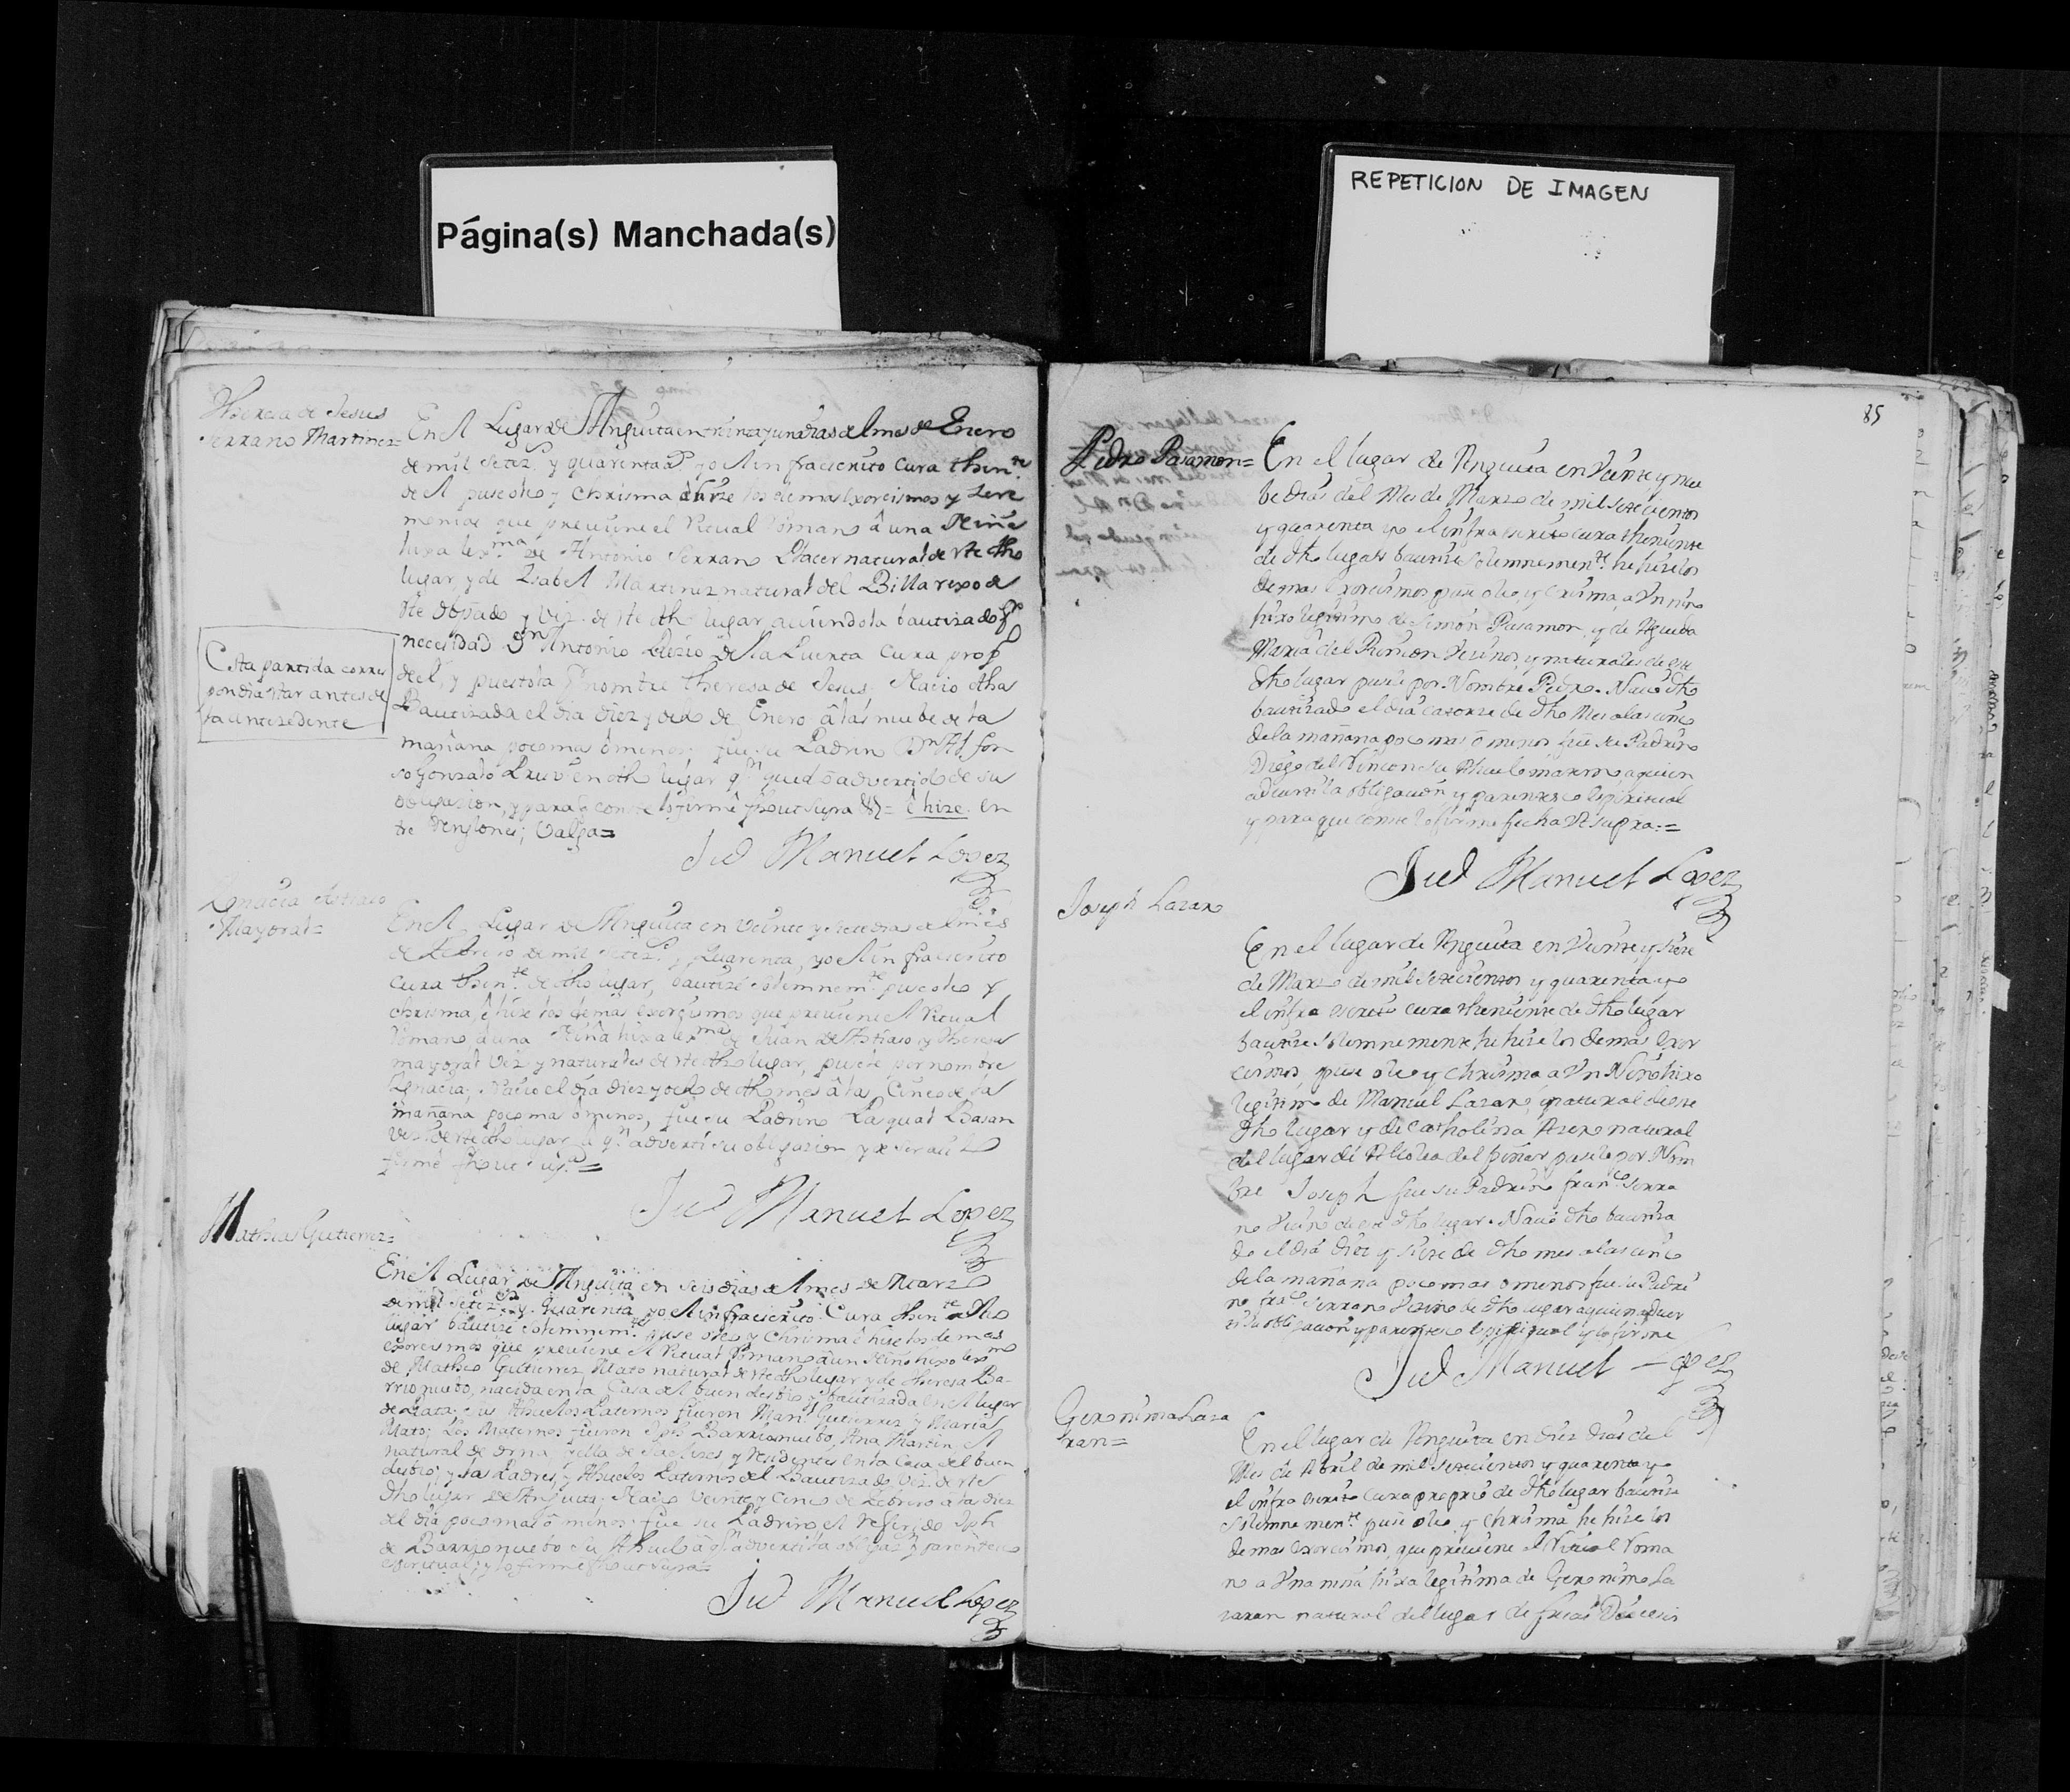 Página(s) Manchada(s)
REPETICION DE IMAGEN
85
Theresa de Jesus
Serrano Martinez=
En el Lugar de Anguita en treinta y un dias del mes de Enero
de mil Setez.s y quarenta yo el infraescrito Cura thin.te
de el puse oleo y Chrisma è hize los demas exorcismos y Sere
monias que previene el Ritual Romano â una Niña
hixa lex.ma de Antonio Serrano natural de este dho
lugar, y de Isabel Martinez natural del Billarexo de
este Obpado y vez. de este dho lugar, aviendola bautizado p.r
necesidad D.n Antonio de la Puerta Cura prop.
de el, y puestola por nombre Theresa de Jesus; Nacio dha
Bautizada el dia diez y ocho de Enero â las nuebe de la
mañana poco mas ô menos; fue su Padrino D.n Alfon
so Gonzalo en dho lugar q.n quedò advertido de su
obligasion, y para q conste lo firmè fho ut supra = è hize en
tre Renglones; Valga=
Esta partida corres
pondia estar antes de
la antezedente
Jud Manuel Lopez
Ignacia Astiaso
Mayoral=
En el Lugar de Anguita en veinte y siete dias del mes
de Febrero de mil setez.s y Quarenta, yo el infraescrito
Cura thin.te de dho lugar, bautizè solemnem.te puse oleo y
chrisma, è hize los demàs exorcismos que previene el Ritual
Romano â una Niña hixa lex.ma de Juan de Astiaso y Theresa
mayoral vez.s y naturales de este dho lugar, pusele por nombre
Ignacia; Naciò el dia diez y ocho de dho mes â las Cinco de la
mañana poco mas ô menos, fue su Padrino Pasqual Basan
vez.o de este dho lugar â q.n advertì su obligasion
firmè fho ut supra=
Jud Manuel Lopez
Mathias Gutierrez=
En el Lugar de Anguita en seis dias del mes de Marzo
de mil setez.s y Quarenta yo el infraescrito Cura thin.te de dho
lugar bautizè solemnem.te puse oleo y Chrisma è hize los demas
exorcismos que previene el Ritual Romano â un Niño hixo lex.mo
de Matheo Gutierrez Mato natural de este dho lugar y de theresa Ba-
rrionuebo, nacida en la Casa del buen desbio y bautizada en el lugar
de Luzaga; sus Abuelos Paternos fueron Man.l Gutierrez y Maria
Mato; Los Maternos fueron Jph Barrionuebo, Ana Martin, el
natural de Orna, y ella de Saelizes y residentes en la Casa del buen
desbio; y los Padres, y Abuelos Paternos del Bautizado vez.s de este
dho lugar de Anguita; Naciò Veinte y Cinco de Febrero a las diez
del dia poco mas ô menos: fue su Padrino el referido Jph
de Barrionuebo su Abuelo â q.n advertì la obligaz.n y parentesco
espiritual; y lo firmè fho ut supra=
Jud Manuel Lopez
Pedro Pasamon=
En el lugar de Anguita en Veinte y nue
be dias del Mes de Marzo de mil setecientos
y quarenta yo el infraescrito cura theniente
de dho lugar bautize solemnemen.te he hize los
demas exorcismos puse oleo, y crisma, a Vn niño
hixo legitimo de Simon Pasamon, y de Agueda
Maria del Rincon Vesinos, y naturales de este
dho lugar pusele por Nombre Pedro. Nacio dho
bautizado el dia catorze de dho Mes a las cinco
de la mañana poco mas ò menos fue su Padrino
Diego del Rincon su Abuelo materno, a quien
adverti la obligacion y parentesco espiritual
y para que conste lo firme fecha Vt supra.=
Jud Manuel Lopez
Joseph Lazaro
En el lugar de Anguita en Veinte y siete
de Marzo de mil setecientos y quarenta yo
el infraescrito cura theniente de dho lugar
bautize solemnemente he hize los demas exor
cismos, puse oleo y chrisma a Vn Niño hixo
legitimo de Manuel Lazaro natural de este
dho lugar y de Catholina natural
del lugar de Alcolea del pinar pusele por Nom
bre Joseph fue su Padrino fran.co Serra
no Vecino de este dho lugar. Nacio dho bautiza
do el dia diez y siete de dho mes a las cinco
de la mañana poco mas o menos fue su Padri
no fra.co Serrano Vecino de dho lugar a quien adver
ti la obligacion y parentesco espiritual y lo firme
Jud Manuel Lopez
Geronima Laza
ran=
En el lugar de Anguita en diez dias del
Mes de Abril de mil setecientos y quarenta yo
el infraescrito Cura proprio de dho lugar bautize
solemnemen.te puse oleo, y Chrisma he hize los
demas exorcismos, que previene el Ritual Roma
no a Vna niña hixa legitima de Geronimo La
zaran natural del lugar de frias Diocesis